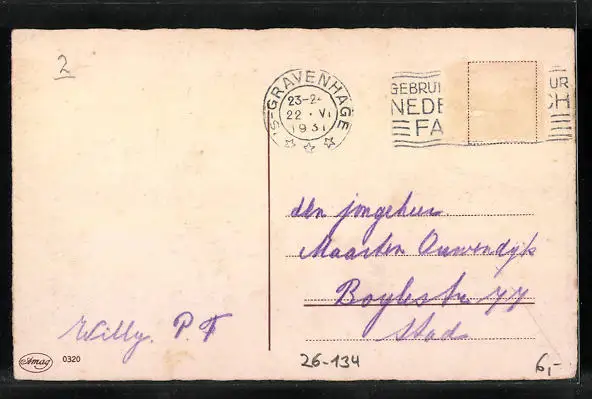 2
's-GRAVENHAGE
23-2
22 · VI
1931
GEBRUI
NEDE
FA
UR
CH
den jongeheer
Maarten Ouwendijk
Boylestr. 77
Stad
Willy. P. F
Amag 0320
26-134
6,-